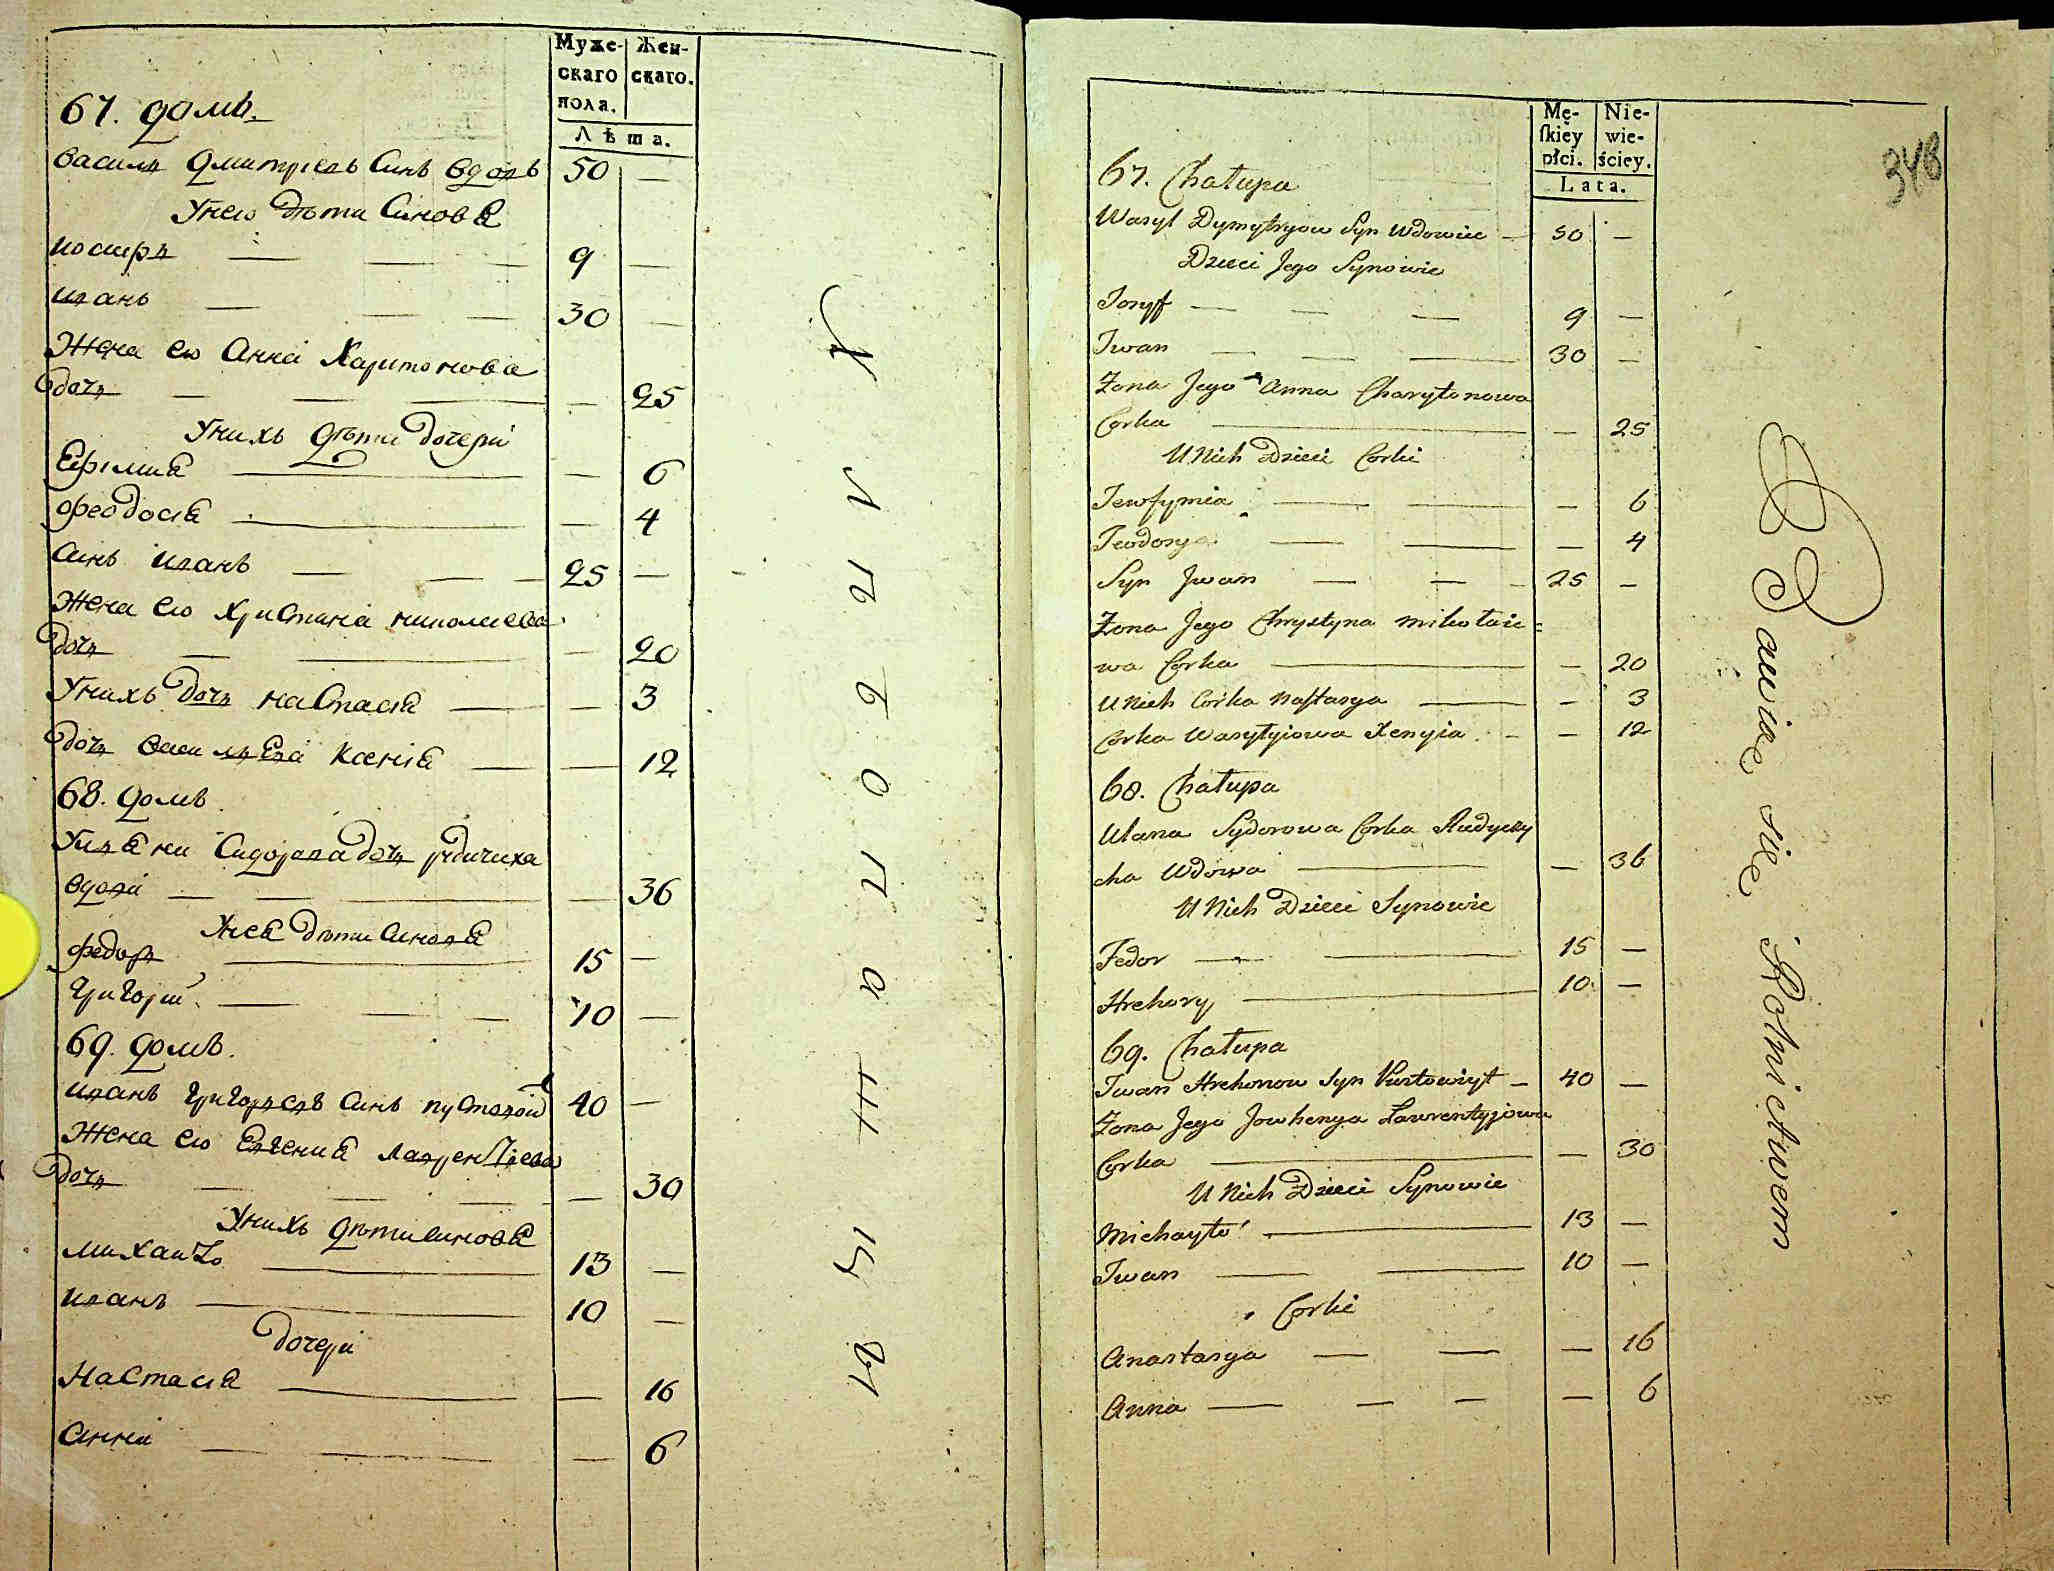 Муже-
скаго
пола.
Жен-
скаго.
Лѣта.
67. домъ.
Василь Дмитріевъ Синъ вдовъ 50 —
Унего дѣти Синовя
Иосифъ — — — 9 —
Иванъ — — — 30 —
Жена его Анна Харитонова
дочь — — — — 25
Унихъ дѣти дочери
Ефимия — — 6
Феодосия — — 4
Синъ Иванъ — — — 25 —
Жена его Христина николаева
дочь — — — 20
Унихъ дочь настасия — — 3
дочь васильева Ксения — — 12
68. домъ
Улияни Сидорова дочь
вдова — — — — 36
Унея дѣти синовя
Федоръ — 15 —
Григорий — — — 10 —
69. домъ.
Иванъ Григорьевъ Синъ пустовой 40 —
Жена его Евгения Лаврентіева
дочь — — — — 30
Унихъ дѣти синовя
Михайло — 13 —
Иванъ — 10 —
дочери
Настасия — — 16
Анна — — — — 6
Хлѣбопашцы
Mę-
skiey
płci.
Nie-
wie-
ściey.
Lata.
348
67. Chałupa
Wasyl Dymytryow Syn Wdowiec — 50 —
Dzieci Jego Synowie
Iosyff — — — 9 —
Iwan — — — 30 —
Żona Jego Anna Charytonowa
Corka — — 25
U Nich Dzieci Corki
Jewfymia — — — 6
Teodosya — — — 4
Syn Jwan — — — 25 —
Żona Jego Chrystyna Mikołaie=
wa Corka — — 20
U Nich Corka Nastasya — — 3
Corka Wasylyiowa Xenyia — — 12
68. Chałupa
Ulana Sydorowa Corka Rudyczy
cha Wdowa — — 36
U Nich Dzieci Synowie
Fedor — — 15 —
Hrehory — 10 —
69. Chałupa
Iwan Hrehorow Syn — 40 —
Żona Jego Jowhenya Lawrentyjowa
Corka — — 30
U Nich Dzieci Synowie
Michayło — 13 —
Iwan — — 10 —
Corki
Anastasya — — — 16
Anna — — — — 6
Bawiące się Rolnictwem